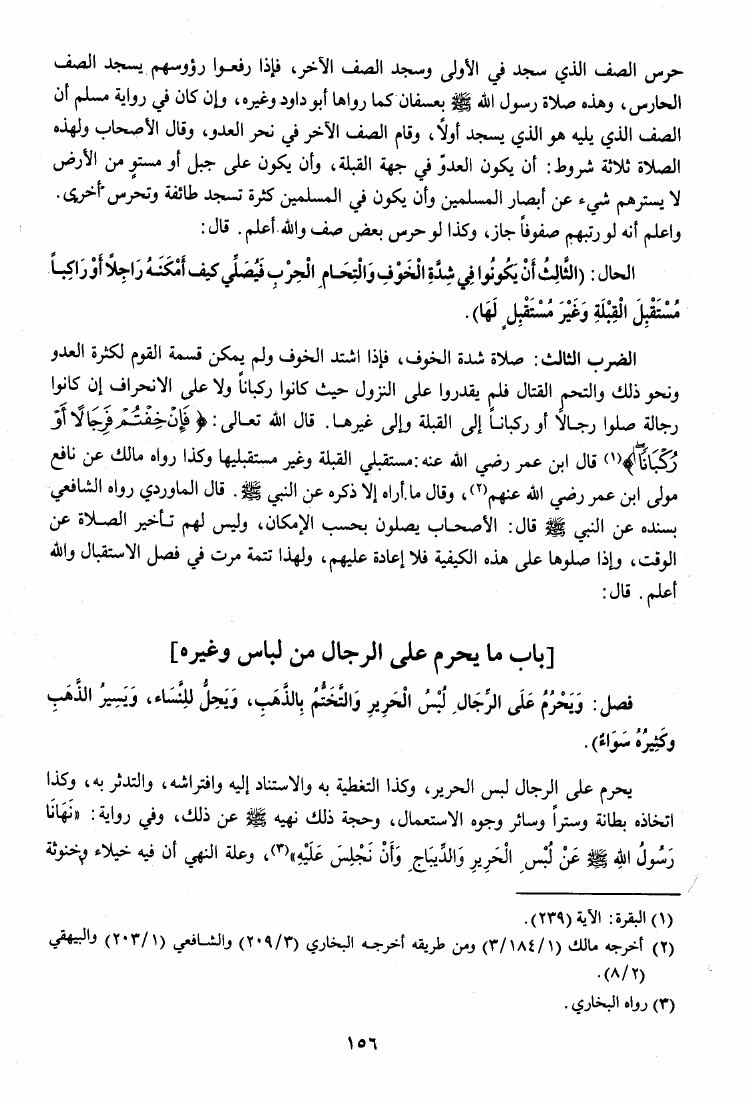 حرس الصف الذي سجد في الأولى وسجد الصف الآخر، فإذا رفعوا رؤوسهم يسجد الصف
الحارس، وهذه صلاة رسول الله ﷺ بعسفان كما رواها أبو داود وغيره، وإن كان في رواية مسلم أن
الصف الذي يليه هو الذي يسجد أولاً، وقام الصف الآخر في نحر العدو، وقال الأصحاب ولهذه
الصلاة ثلاثة شروط: أن يكون العدوّ في جهة القبلة، وأن يكون على جبل أو مستوٍ من الأرض
لا يسترهم شيء عن أبصار المسلمين وأن يكون في المسلمين كثرة تسجد طائفة وتحرس أخرى.
واعلم أنه لو رتبهم صفوفاً جاز، وكذا لو حرس بعض صف والله أعلم. قال:
الحال: (الثَّالِثُ أَنْ يَكُونُوا فِي شِدَّةِ الْخَوْفِ وَالْتِحَامِ الْحِرْبِ فَيُصَلِّي كَيف أَمْكَنَهُ رَاجِلًا أَوْ رَاكِباً
مُسْتَقْبِلَ الْقِبْلَةِ وَغَيْرَ مُسْتَقْبِلٍ لَهَا).
الضرب الثالث: صلاة شدة الخوف، فإذا اشتد الخوف ولم يمكن قسمة القوم لكثرة العدو
ونحو ذلك والتحم القتال فلم يقدروا على النزول حيث كانوا ركباناً ولا على الانحراف إن كانوا
رجالة صلوا رجالًا أو ركبانـاً إلى القبلة وإلى غيرها. قال الله تعالى: ﴿ فَإِنْ خِفْتُمْ فَرِجَالًا أَوْ
رُكْبَانًا ﴾(١) قال ابن عمر رضي الله عنه: مستقبلي القبلة وغير مستقبليها وكذا رواه مالك عن نافع
مولى ابن عمر رضي الله عنهم(٢)، وقال ما أراه إلا ذكره عن النبي ﷺ. قال الماوردي رواه الشافعي
بسنده عن النبي ﷺ قال: الأصحاب يصلون بحسب الإمكان، وليس لهم تأخير الصلاة عن
الوقت، وإذا صلوها على هذه الكيفية فلا إعادة عليهم، ولهذا تتمة مرت في فصل الاستقبال والله
أعلم. قال:
[باب ما يحرم على الرجال من لباس وغيره]
فصل: وَيَحْرُمُ عَلَى الرِّجَالِ لُبْسُ الْحَرِيرِ وَالتَّخَتُّمُ بِالذَّهَبِ، وَيَحِلُّ لِلنِّسَاء، وَيَسِيرُ الذَّهَبِ
وكَثِيرُهُ سَوَاءً).
يحرم على الرجال لبس الحرير، وكذا التغطية به والاستناد إليه وافتراشه، والتدثر به، وكذا
اتخاذه بطانة وستراً وسائر وجوه الاستعمال، وحجة ذلك نهيه ﷺ عن ذلك، وفي رواية: «نَهَانَا
رَسُولُ اللهِ ﷺ عَنْ لُبْسِ الْحَرِيرِ وَالدِّيبَاجِ وَأَنْ نَجْلِسَ عَلَيْهِ»(٣)، وعلة النهي أن فيه خيلاء وخنوثة
(١) البقرة: الآية (٢٣٩).
(٢) أخرجه مالك (٣/١٨٤/١) ومن طريقه أخرجه البخاري (٢٠٩/٣) والشافعي (٢٠٣/١) والبيهقي
(٨/٢).
(٣) رواه البخاري.
١٥٦